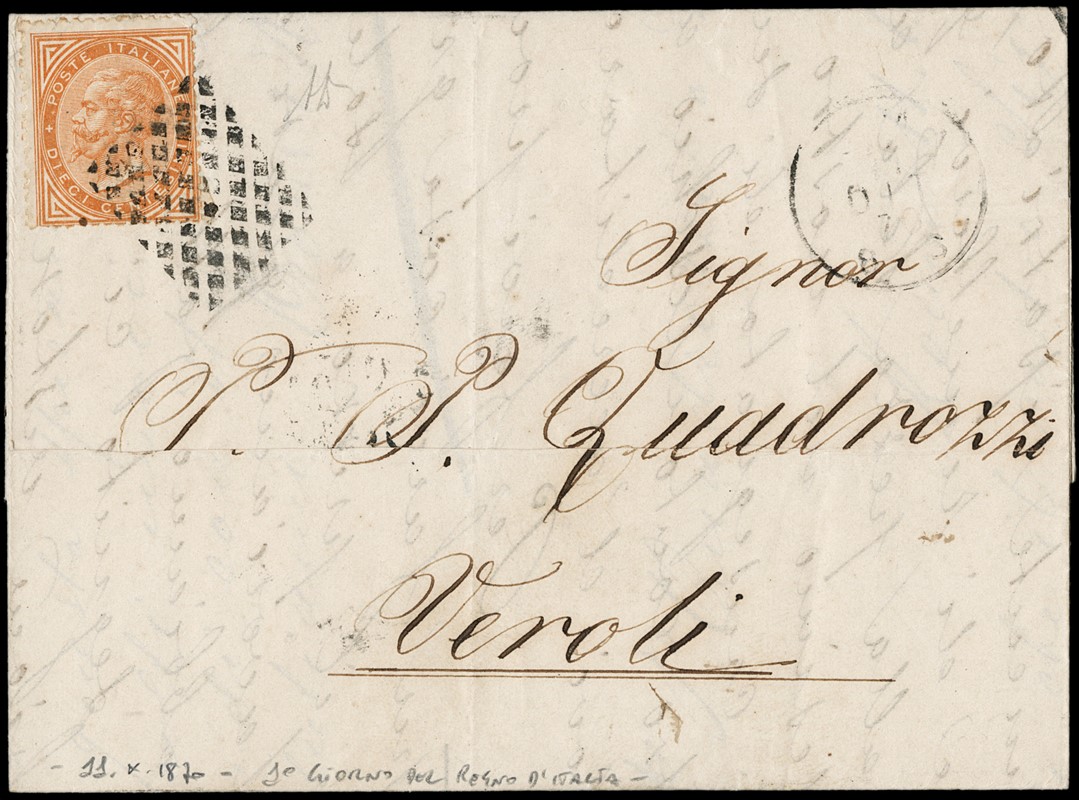 POSTE ITALIANE
DIECI CENTESIMI
Signor
P. P. Quadrozzi
Veroli
- 11. X. 1870 - 1° GIORNO DEL REGNO D'ITALIA -